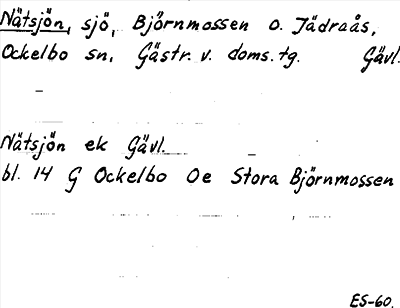 Nätsjön, sjö, Björnmossen o. Jädraås,
Ockelbo sn, Gästr. v. doms. tg. Gävl.
Nätsjön ek Gävl.
bl. 14 G Ockelbo Oe Stora Björnmossen
ES-60.